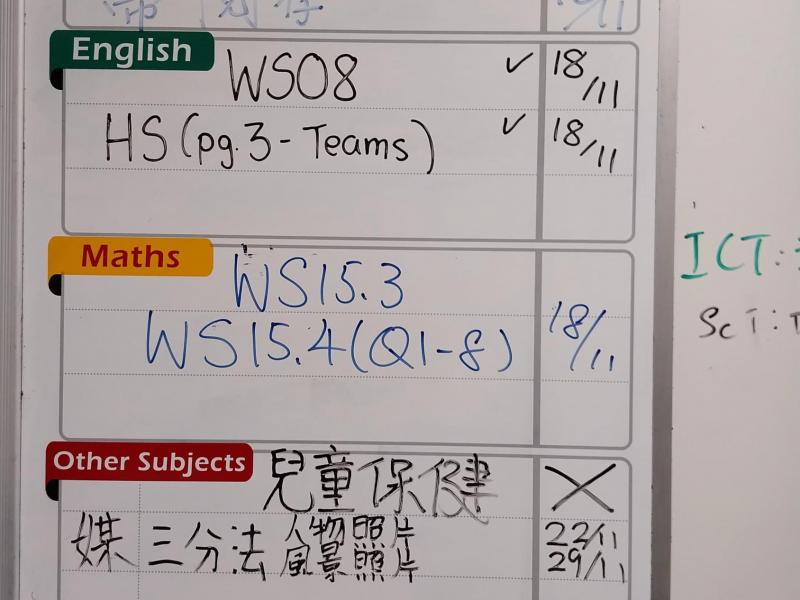 English
WS08 ✓ 18/11
HS (pg.3 - Teams) ✓ 18/11
Maths
WS15.3
WS15.4 (Q1-8) 18/11
ICT:
Sci:
Other Subjects
兒童保健 ×
媒 三分法 人物照片 22/11
風景照片 29/11